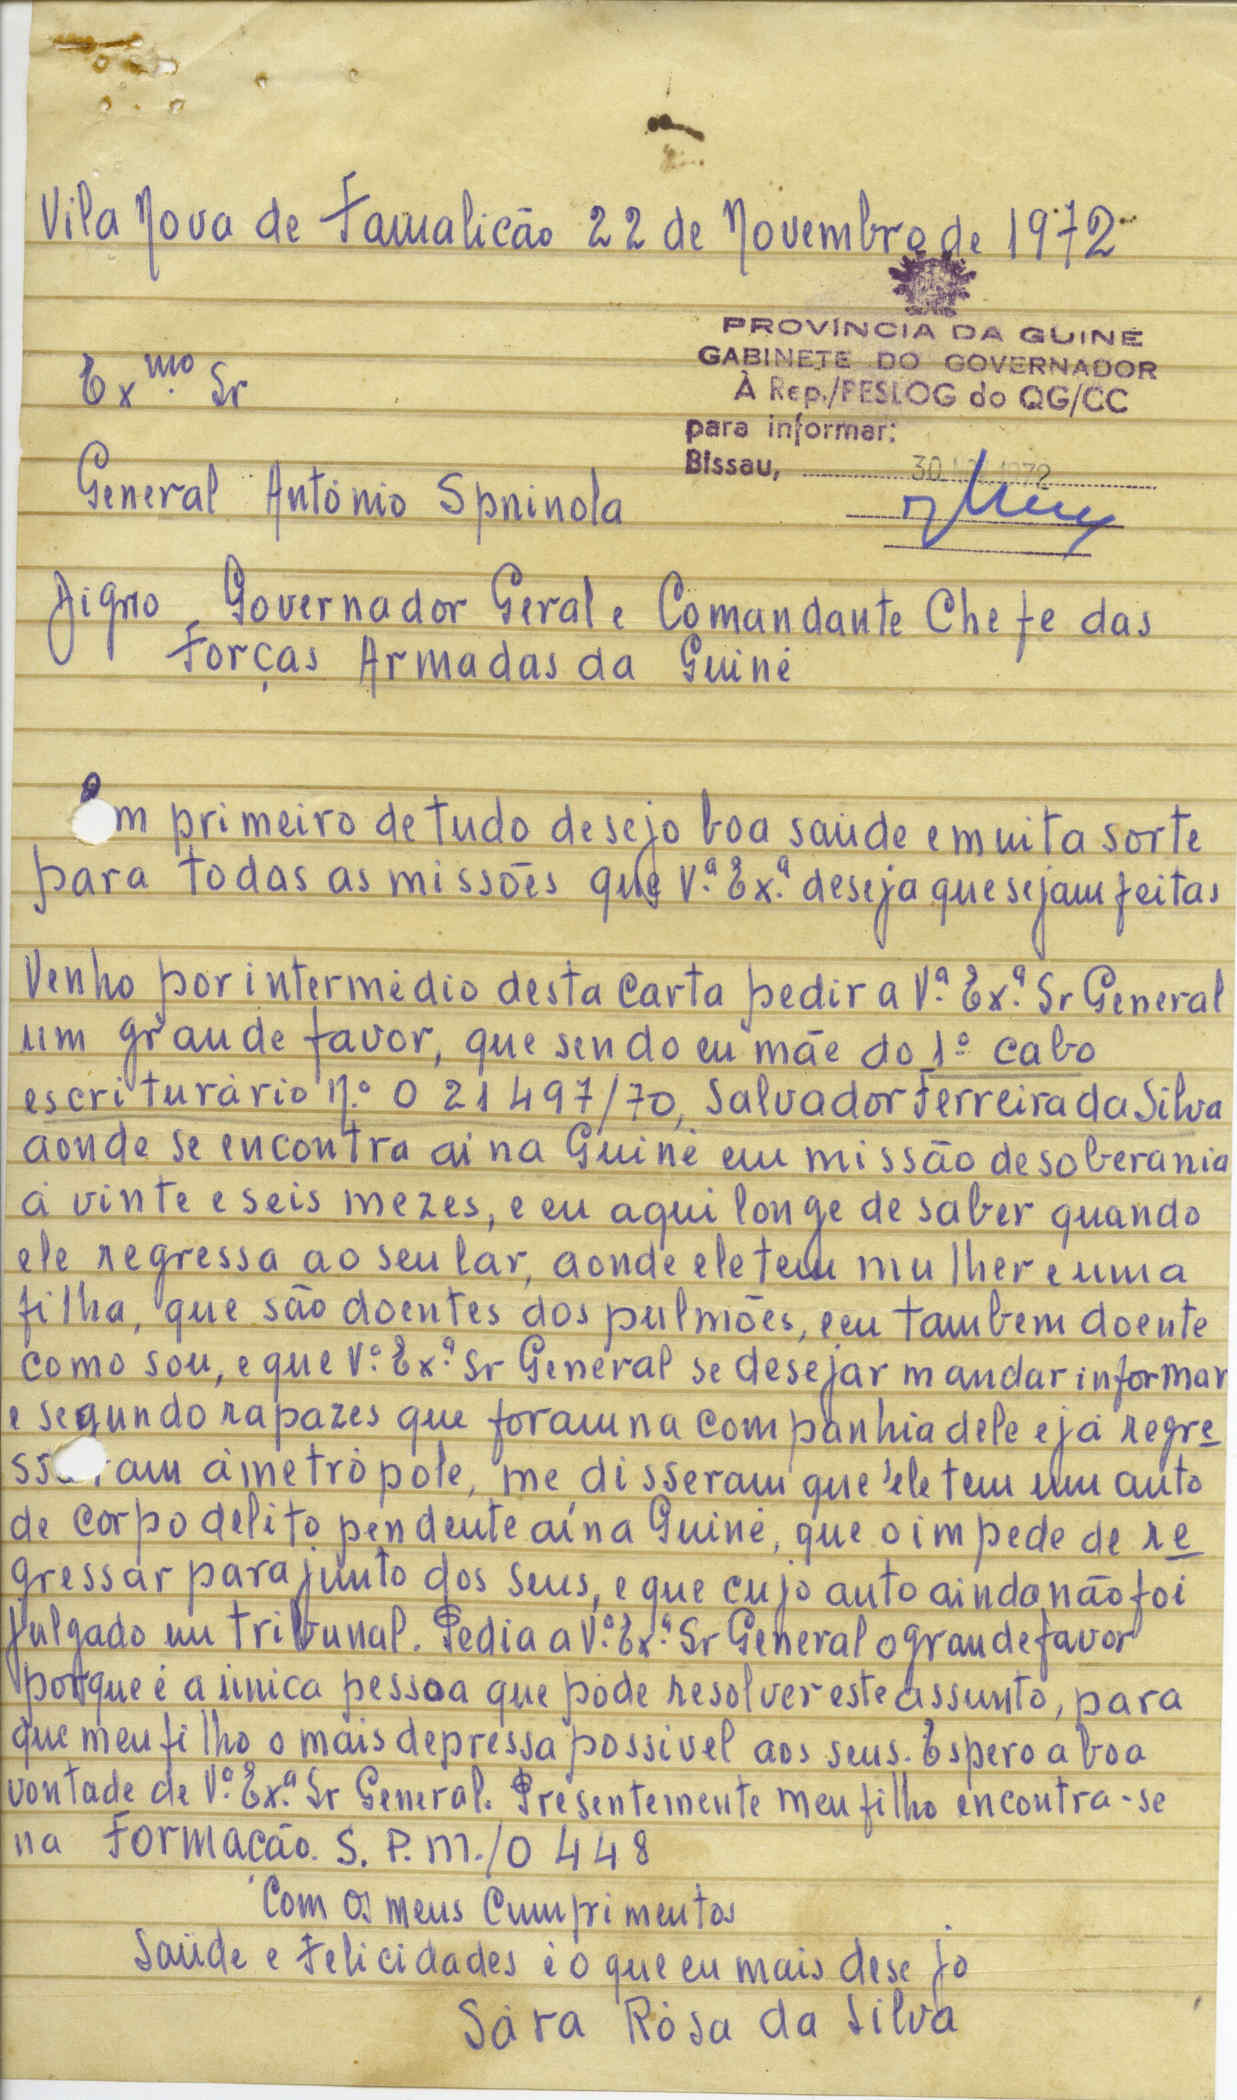 Vila Nova de Famalicão 22 de Novembro de 1972
PROVÍNCIA DA GUINÉ
GABINETE DO GOVERNADOR
À Rep./PESLOG do QG/CC
para informar:
Bissau, 30 1972
Exmo. Sr
General António Spninola
Digno Governador Geral e Comandante Chefe das
Forças Armadas da Guiné
Em primeiro de tudo desejo boa saúde e muita sorte
para todas as missões que V.ª Ex.ª deseja que sejam feitas
Venho por intermédio desta carta pedir a V.ª Ex.ª Sr General
um grande favor, que sendo eu mãe do 1º cabo
escriturário N.º 021497/70, Salvador Ferreira da Silva
aonde se encontra aí na Guiné em missão de soberania
á vinte e seis mezes, e eu aqui longe de saber quando
ele regressa ao seu lar, aonde ele tem mulher e uma
filha, que são doentes dos pulmões, e eu tambem doente
como sou, e que V.ª Ex.ª Sr General se desejar mandar informar
e segundo rapazes que foram na companhia dele e já regre
ssaram á metrópole, me disseram que ele tem um auto
de corpo delito pendente aí na Guiné, que o impede de re
gressar para junto dos seus, e que cujo auto ainda não foi
julgado em tribunal. Pedia a V.ª Ex.ª Sr General o grande favor
porque é a única pessoa que pode resolver este assunto, para
que meu filho o mais depressa possivel aos seus. Espero a boa
vontade de V.ª Ex.ª Sr General. Presentemente meu filho encontra-se
na Formação. S.P.M./0448
Com os meus Cumprimentos
Saúde e Felicidades é o que eu mais desejo
Sára Rósa da Silva